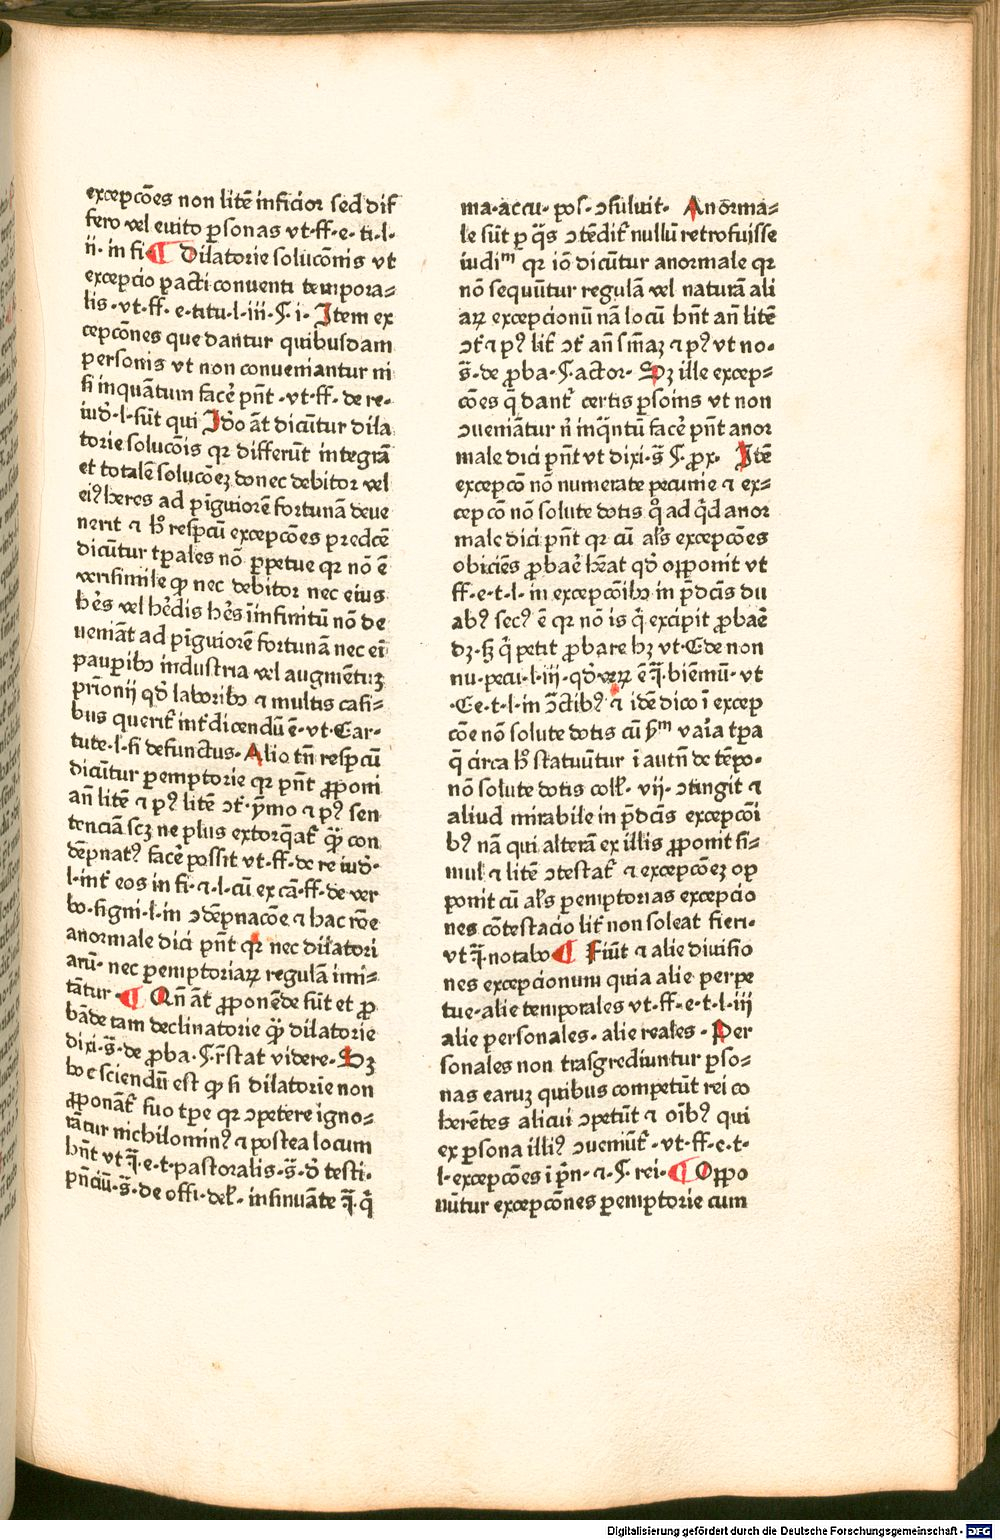 excepcōes non litē inficior sed dif
fero vel euito ꝑsonas vt·ff·e·ti·l·
ii·in fi· ¶ Dilatorie solucōnis vt
excepcio pacti conuenti tempora⸗
lis·vt·ff·e·titu·l·iii·§·i· Item ex
cepcōnes que dantur quibusdam
personis vt non conueniantur ni
si inquātum facē pn̄t·vt·ff·de re⸗
iud̓·l·sūt qui Id̓o āt dicūtur dila
torie solucōis qꝛ differūt integrā
et totalē solucōeꝫ donec debitor vel
eiꝰ heres ad pīguiorē fortunā deue
nerit ⁊ h̓ respcū excepcōes predcē
dicūtur tꝑales nō ꝑpetue qꝛ nō ē
verisimile ꝙ nec debitor nec eius
hēs vel hēdis hēs īinfinitū nō de
ueniāt ad pīguiorē fortunā nec eī
pauꝑibꝰ industria vel augmētuꝫ
prīonij qd̓ laboribꝰ ⁊ multis casi⸗
bus querit᷑ int᷑dicendū ē·vt·Car⸗
tute·l·si defunctus· Alio tn̄ respcū
dicūtur ꝑemptorie qꝛ pn̄t ꝓponi
an̄ litē ⁊ pꝰ litē ɔt᷑·ṗmo ⁊ pꝰ sen
tenciā scꝫ ne plus extorq̄at᷑ ꝙ̄ con
dēpnatꝰ facē possit vt·ff·de re iud̓·
l·int᷑ eos in fi·⁊·l·cū ex cā·ff·de ver
bo·signi·l·in ɔdēpnacōe ⁊ hac rōe
anormale dici pn̄t qꝛ nec dilatori
arū·nec ꝑemptoriaꝝ regulā imi⸗
tātur· ¶ Qn̄ āt ꝓponēde sūt et ꝓ
bāde tam declinatorie ꝙ̄ dilatorie
dixi·s̄·de ꝓba·§·r̄stat videre· Sꝫ
hoc sciendū est ꝙ si dilatorie non
ꝓponāt᷑ suo tꝑe qꝛ ɔpetere igno⸗
rātur nichilominꝰ ⁊ postea locum
hn̄t vt·j̄·e·t·pastoralis·s̄·d̓ testi·
pn̄ciū·s̄·de offi·del̓·insinuāte j̄·q̄
ma·accu·pos·ɔsuluit· Anorma⸗
le sūt ꝑ q̄s ɔtēdit᷑ nullū retrofuisse
iudiᵐ qꝛ iō dicūtur anormale qꝛ
nō sequūtur regulā vel naturā ali
aꝝ excepcionū nā locū hn̄t an̄ litē
ɔt᷑ ⁊ pꝰ lit᷑ ɔt᷑ an̄ sm̄aꝫ ⁊ pꝰ vt no·
s̄·de ꝓba·§·actor· Sꝫ ille excep⸗
cōes q̄ dant᷑ certis ꝑsoins vt non
ɔueniātur n̄ inq̄ntū facē pn̄t anor
male dici pn̄t vt dixi·s̄ §·ꝓx· Itē
excepcō nō numerate pecunie ⁊ ex⸗
cepcō nō solute dotis qͦ ad q̄d anor
male dici pn̄t qꝛ cū al̓s excepcōes
obiciēs ꝓbaē hēat qd̓ oꝓponit vt
ff·e·t·l·in excepcōibꝰ in p̄dcīs du
abꝰ secꝰ ē qꝛ nō is q̄ excipit ꝓbaē
dꝫ·sꝫ q̄ petit ꝓbare hꝫ vt·C·de non
nu·pecu·l·iii·qd̓ veꝝ ē j̄·biēniū·vt
·C·e·t·l·in ɔ̄ctibꝰ ⁊ idē dico ī excep
cōe nō solute dotis cū ṗᵐ vaīa tꝑa
q̄ circa h̓ statuūtur ī autn̄ de tēpo·
nō solute dotis coll̓·vij·ɔtingit ⁊
aliud mirabile in p̄dcīs excepcōi
bꝰ nā qui alterā ex illis ꝓponit si⸗
mul ⁊ litē ɔtestat᷑ ⁊ excepcōeꝫ op
ponit cū al̓s ꝑemptorias excepcio
nes cōtestacio lit᷑ non soleat fieri·
vt j̄·notabo ¶ Fiūt ⁊ alie diuisio
nes excepcionum quia alie perpe
tue·alie temporales vt·ff·e·t·l·iij
alie personales·alie reales· Per
sonales non trāsgrediuntur ꝑso⸗
nas earuꝫ quibus competūt rei co
herētes alicui ɔpetūt ⁊ oībꝰ qui
ex ꝑsona illiꝰ ɔueniūt᷑·vt·ff·e·t·
l·excepcōes ī pn̄·⁊·§·rei· ¶ Oꝓpo
nūtur excepcōnes ꝑemptorie cum
Digitalisierung gefördert durch die Deutsche Forschungsgemeinschaft - DFG